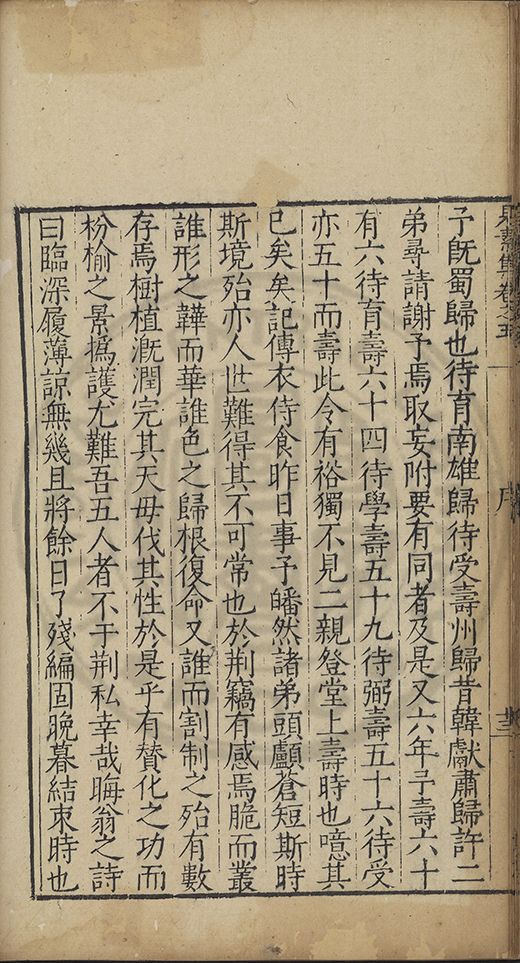 卷之五
序
予旣蜀歸也待育南雄歸待受壽州歸昔韓獻肅歸許二
弟尋請謝予焉取妄附要有同者及是又六年予壽六十
有六待育壽六十四待學壽五十九待弼壽五十六待受
亦五十而壽此令有裕獨不見二親登堂上壽時也噫其
已矣矣記傳衣侍食昨日事予皤然諸弟頭顱蒼短斯時
斯境殆亦人世難得其不可常也於荆竊有感焉脆而叢
誰形之韡而華誰色之歸根復命又誰而割制之殆有數
存焉樹植漑潤完其天毋伐其性於是乎有賛化之功而
枌榆之景撝護尤難吾五人者不于荆私幸哉晦翁之詩
曰臨深履薄諒無幾且將餘日了殘編固晚暮結束時也